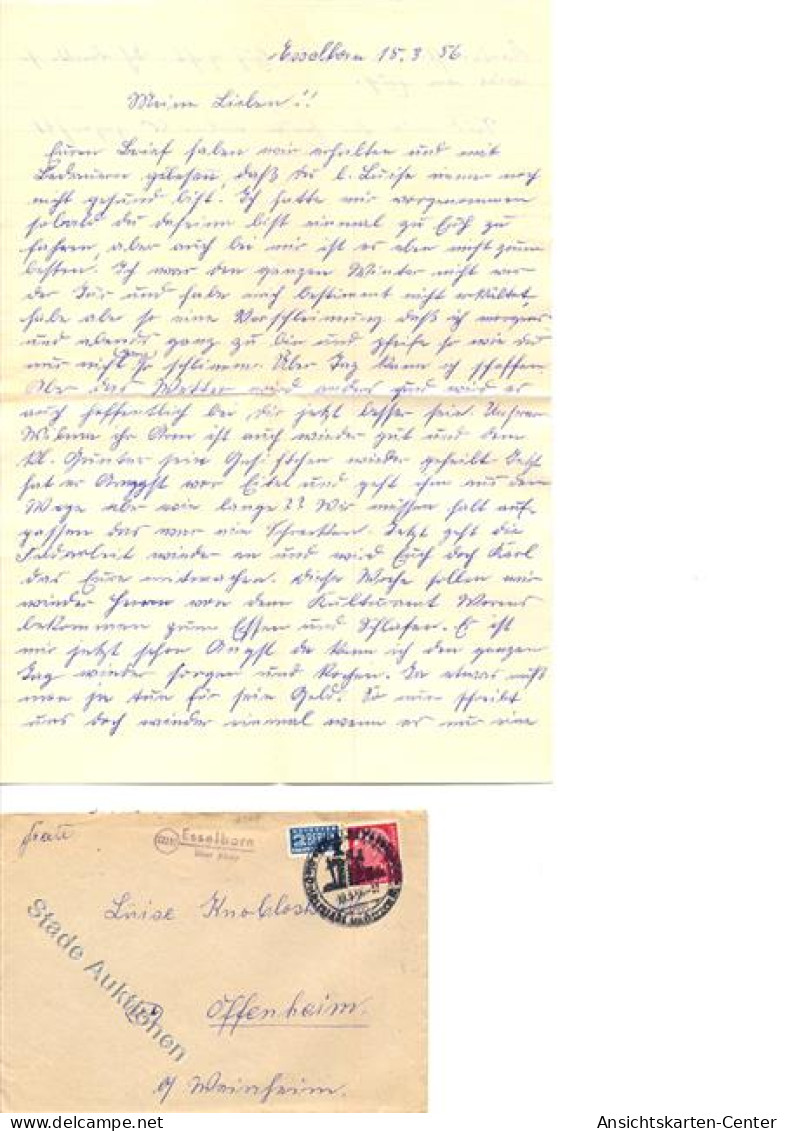 Esselborn 15.3.56
Meine Lieben!!
Euren Brief haben wir erhalten und mit
Bedauern gelesen, daß du l. Luise immer noch
nicht gesund bist. Ich hatte mir vorgenommen
sobald du daheim bist einmal zu Euch zu
fahren, aber auch bei mir ist es eben nicht zum
besten. Ich war den ganzen Winter nicht vor
der Tür und habe mich bestimmt nicht erkältet,
habe aber so eine Verschleimung daß ich morgens
und abends ganz zu bin und pfeife so wie du
nur nicht ganz so schlimm. Über Tag kann ich schaffen
Aber das Wetter wird anders und wird es
auch hoffentlich bei Dir jetzt besser sein. Unsrer
Wilma ihr Arm ist auch wieder gut und dem
kl. Günter sein Gesichtchen wieder geheilt. Jetzt
hat er Angst vor und geht ihm aus dem
Wege aber wie lange?? Wir müssen halt auf-
passen das war ein Schrecken. Jetzt geht die
Feldarbeit wieder an und wird Euch doch Karl
das Eure mitmachen. Diese Woche sollen wir
wieder Herrn von dem Kulturamt Worms
bekommen zum Essen und Schlafen. Es ist
mir jetzt schon Angst da kann ich den ganzen
Tag wieder sorgen und kochen. Ja etwas muß
man ja tun für sein Geld. So nun schreibt
uns doch wieder einmal wenn es nur eine
Frau
Esselborn
über Alzey
Luise Knobloch
Offenheim
Weinheim.
Stade Auktionen
Ansichtskarten-Center